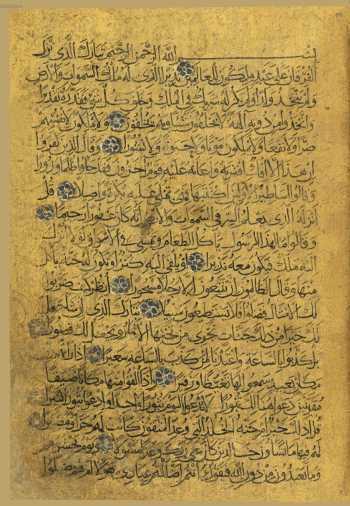 بسم الله الرحمن الرحيم تبارك الذي نزل
الفرقان على عبده ليكون للعالمين نذيرا الذي له ملك السموات والارض
ولم يتخذ ولدا ولم يكن له شريك في الملك وخلق كل شيء فقدره تقديرا
واتخذوا من دونه الهة لا يخلقون شيئا وهم يخلقون ولا يملكون لانفسهم
ضرا ولا نفعا ولا يملكون موتا ولا حيوة ولا نشورا وقال الذين كفروا
ان هذا الا افك افتريه واعانه عليه قوم اخرون فقد جاؤا ظلما وزورا
وقالوا اساطير الاولين اكتتبها فهي تملى عليه بكرة واصيلا قل
انزله الذي يعلم السر في السموات والارض انه كان غفورا رحيما
وقالوا مال هذا الرسول ياكل الطعام ويمشي في الاسواق لولا انزل
اليه ملك فيكون معه نذيرا او يلقى اليه كنز او تكون له جنة ياكل
منها وقال الظالمون ان تتبعون الا رجلا مسحورا انظر كيف ضربوا
لك الامثال فضلوا فلا يستطيعون سبيلا تبارك الذي ان شاء جعل
لك خيرا من ذلك جنات تجري من تحتها الانهار ويجعل لك قصورا
بل كذبوا بالساعة واعتدنا لمن كذب بالساعة سعيرا اذا راتهم
من مكان بعيد سمعوا لها تغيظا وزفيرا واذا القوا منها مكانا ضيقا
مقرنين دعوا هنالك ثبورا لا تدعوا اليوم ثبورا واحدا وادعوا ثبورا كثيرا
قل اذلك خير ام جنة الخلد التي وعد المتقون كانت لهم جزاء ومصيرا
لهم فيها ما يشاؤن خالدين كان على ربك وعدا مسؤلا ويوم يحشرهم
وما يعبدون من دون الله فيقول ءانتم اضللتم عبادي هؤلاء ام هم ضلوا